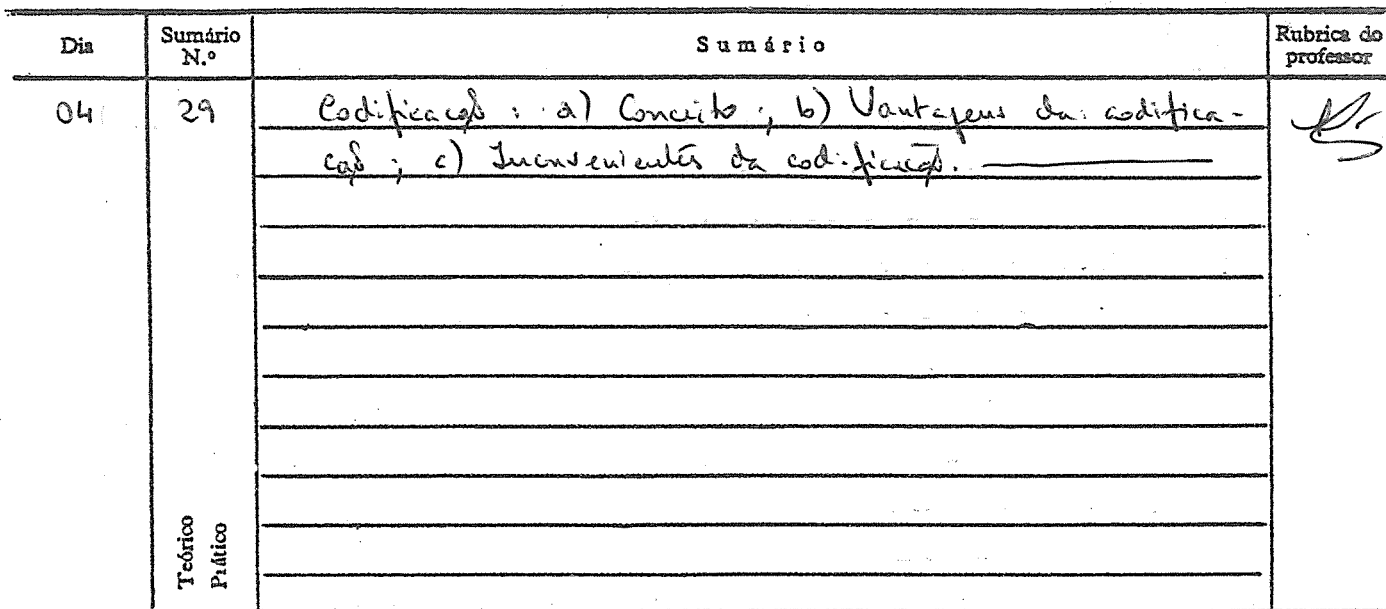 Dia Sumário N.º Sumário Rubrica do professor
04 29 Codificação : a) Conceito ; b) Vantagens da codifica-
ção ; c) Inconvenientes da codificação.
Teórico
Prático